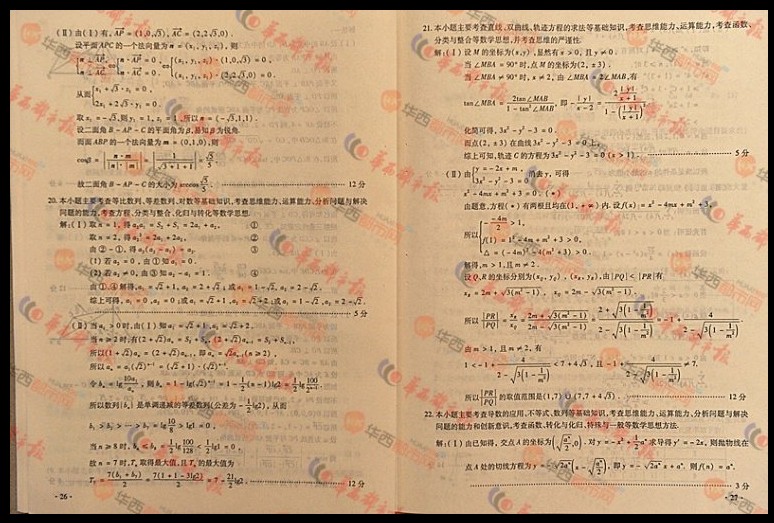 (Ⅱ)由(Ⅰ)有, AP = (1,0,√3), AC = (2,2√3,0).
设平面APC的一个法向量为 n = (x₁, y₁, z₁), 则
n ⊥ AP, n ⊥ AC ⇔ n · AP = 0, n · AC = 0 ⇔ (x₁, y₁, z₁) · (1,0,√3) = 0, (x₁, y₁, z₁) · (2,2√3,0) = 0.
从而 x₁ + √3 z₁ = 0, 2x₁ + 2√3 y₁ = 0.
取 x₁ = -√3, 则 y₁ = 1, z₁ = 1, 所以 n = (-√3,1,1).
设二面角 B - AP - C 的平面角为β, 易知β为锐角.
而面ABP的一个法向量为 m = (0,1,0), 则
cosβ = |n · m / |n| · |m|| = |1/√(3+1+1)| = √5/5.
故二面角 B - AP - C 的大小为 arccos √5/5. 12分
20. 本小题主要考查等比数列、等差数列、对数等基础知识,考查思维能力、运算能力、分析问题与解决
问题的能力,考查方程、分类与整合、化归与转化等数学思想.
解:(Ⅰ)取 n = 1, 得 a₂a₁ = S₂ + S₁ = 2a₁ + a₂, ①
取 n = 2, 得 a₂² = 2a₁ + 2a₂, ②
由②-①, 得 a₂(a₂ - a₁) = a₂. ③
(1)若 a₂ = 0, 由①知 a₁ = 0.
(2)若 a₂ ≠ 0, 由③知 a₂ - a₁ = 1. ④
由①、④解得, a₁ = √2 + 1, a₂ = 2 + √2; 或 a₁ = 1 - √2, a₂ = 2 - √2.
综上可得, a₁ = 0, a₂ = 0; 或 a₁ = √2 + 1, a₂ = √2 + 2; 或 a₁ = 1 - √2, a₂ = 2 - √2.
5分
(Ⅱ)当 a₁ > 0时, 由(Ⅰ)知 a₁ = √2 + 1, a₂ = √2 + 2.
当 n ≥ 2时, 有(2 + √2)aₙ = S₂ + Sₙ, (2 + √2)aₙ₋₁ = S₂ + Sₙ₋₁,
所以(1 + √2)aₙ = (2 + √2)aₙ₋₁, 即 aₙ = √2aₙ₋₁(n ≥ 2),
所以 aₙ = a₁(√2)ⁿ⁻¹ = (√2 + 1) · (√2)ⁿ⁻¹.
令 bₙ = lg 10a₁/aₙ, 则 bₙ = 1 - lg(√2)ⁿ⁻¹ = 1 - 1/2(n - 1)lg2 = 1/2 lg 100/2ⁿ⁻¹
所以数列{bₙ}是单调递减的等差数列(公差为 -1/2 lg2), 从而
b₁ > b₂ > ··· > b₇ = lg 10/8 > lg1 = 0,
当 n ≥ 8时, bₙ ≤ b₈ = 1/2 lg 100/128 < 1/2 lg1 = 0,
故 n = 7时, Tₙ 取得最大值, 且 Tₙ 的最大值为
T₇ = 7(b₁ + b₇)/2 = 7(1 + 1 - 3lg2)/2 = 7 - 21/2 lg2. 12分
· 26 ·
21. 本小题主要考查直线、双曲线、轨迹方程的求法等基础知识,考查思维能力、运算能力,考查函数、
分类与整合等数学思想,并考查思维的严谨性.
解:(Ⅰ)设M的坐标为(x,y), 显然有 x > 0, 且 y ≠ 0.
当∠MBA = 90°时, 点M的坐标为(2, ±3).
当∠MBA ≠ 90°时, x ≠ 2, 由∠MBA = 2∠MAB, 有
tan∠MBA = 2tan∠MAB/(1 - tan²∠MAB), 即 -|y|/(x - 2) = 2|y|/(x + 1) / (1 - (|y|/(x + 1))²),
化简可得, 3x² - y² - 3 = 0.
而点(2, ±3)在曲线 3x² - y² - 3 = 0上,
综上可知, 轨迹C的方程为 3x² - y² - 3 = 0(x > 1). 5分
(Ⅱ)由 y = -2x + m, 3x² - y² - 3 = 0 消去y, 可得
x² - 4mx + m² + 3 = 0. (*)
由题意, 方程(*)有两根且均在(1, +∞)内. 设 f(x) = x² - 4mx + m² + 3,
所以 -(-4m)/2 > 1, f(1) = 1² - 4m + m² + 3 > 0, △ = (-4m)² - 4(m² + 3) > 0.
解得, m > 1, 且 m ≠ 2.
设Q、R的坐标分别为(x_Q, y_Q), (x_R, y_R), 由|PQ| < |PR|有
x_R = 2m + √3(m² - 1), x_Q = 2m - √3(m² - 1).
所以 |PR|/|PQ| = x_R/x_Q = (2m + √3(m² - 1))/(2m - √3(m² - 1)) = (2 + √3(1 - 1/m²))/(2 - √3(1 - 1/m²)) = -1 + 4/(2 - √3(1 - 1/m²)).
由 m > 1, 且 m ≠ 2, 有
1 < -1 + 4/(2 - √3(1 - 1/m²)) < 7 + 4√3, 且 -1 + 4/(2 - √3(1 - 1/m²)) ≠ 7.
所以 |PR|/|PQ| 的取值范围是(1,7)∪(7,7 + 4√3). 12分
22. 本小题主要考查导数的应用、不等式、数列等基础知识,考查思维能力、运算能力、分析问题与解决
问题的能力和创新意识,考查函数、转化与化归、特殊与一般等数学思想方法.
解:(Ⅰ)由已知得, 交点A的坐标为(√(aⁿ/2), 0), 对 y = -x² + 1/2 aⁿ 求导得 y′ = -2x, 则抛物线在
点A处的切线方程为 y = -√2aⁿ(x - √(aⁿ/2)), 即 y = -√2aⁿ x + aⁿ. 则 f(n) = aⁿ.
3分
· 27 ·
华西都市报
华西都市网